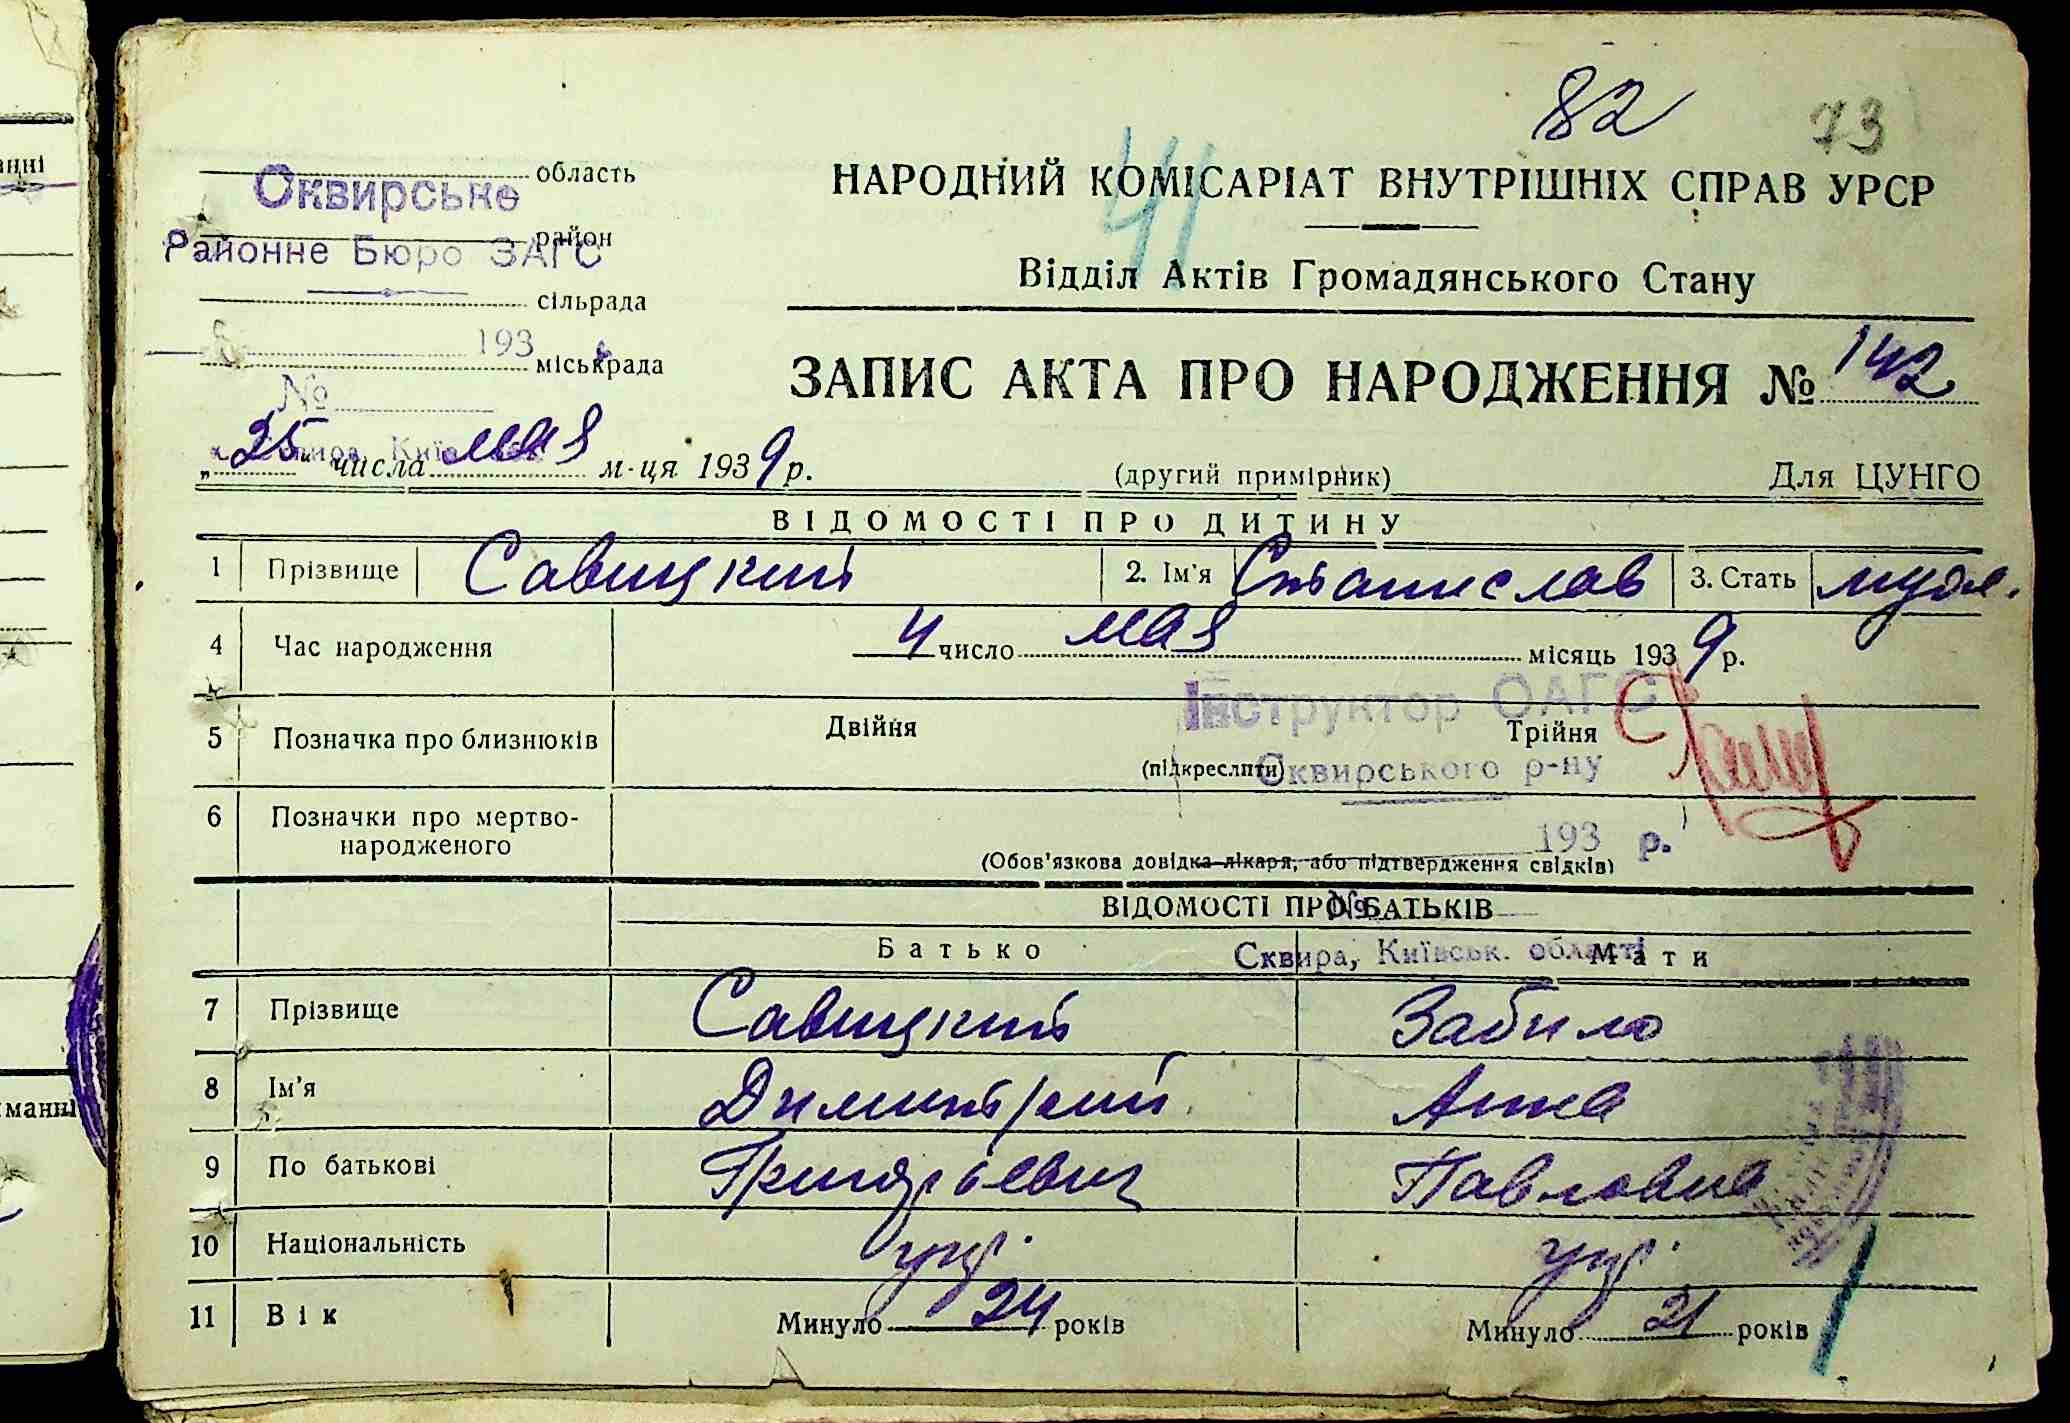 82 73
41
область
Сквирське
район
Районне Бюро ЗАГС
сільрада
193
міськрада
№
НАРОДНИЙ КОМІСАРІАТ ВНУТРІШНІХ СПРАВ УРСР
Відділ Актів Громадянського Стану
ЗАПИС АКТА ПРО НАРОДЖЕННЯ № 142
„25“ числа мая м-ця 1939 р. (другий примірник) Для ЦУНГО
ВІДОМОСТІ ПРО ДИТИНУ
1 Прізвище Савицкий 2. Ім'я Станислав 3. Стать муж.
4 Час народження 4 число мая місяць 1939 р.
Інструктор ОАГС
5 Позначка про близнюків Двійня Трійня
(підкреслити)
Сквирського р-ну
6 Позначки про мертво-
народженого
193 р.
(Обов'язкова довідка лікаря, або підтвердження свідків)
ВІДОМОСТІ ПРО БАТЬКІВ
№
Батько Мати
Сквира, Київськ. області
7 Прізвище Савицкий Забило
8 Ім'я Димитрий Анна
9 По батькові Григорьевич Павловна
10 Національність укр. укр.
11 Вік Минуло 24 років Минуло 21 років